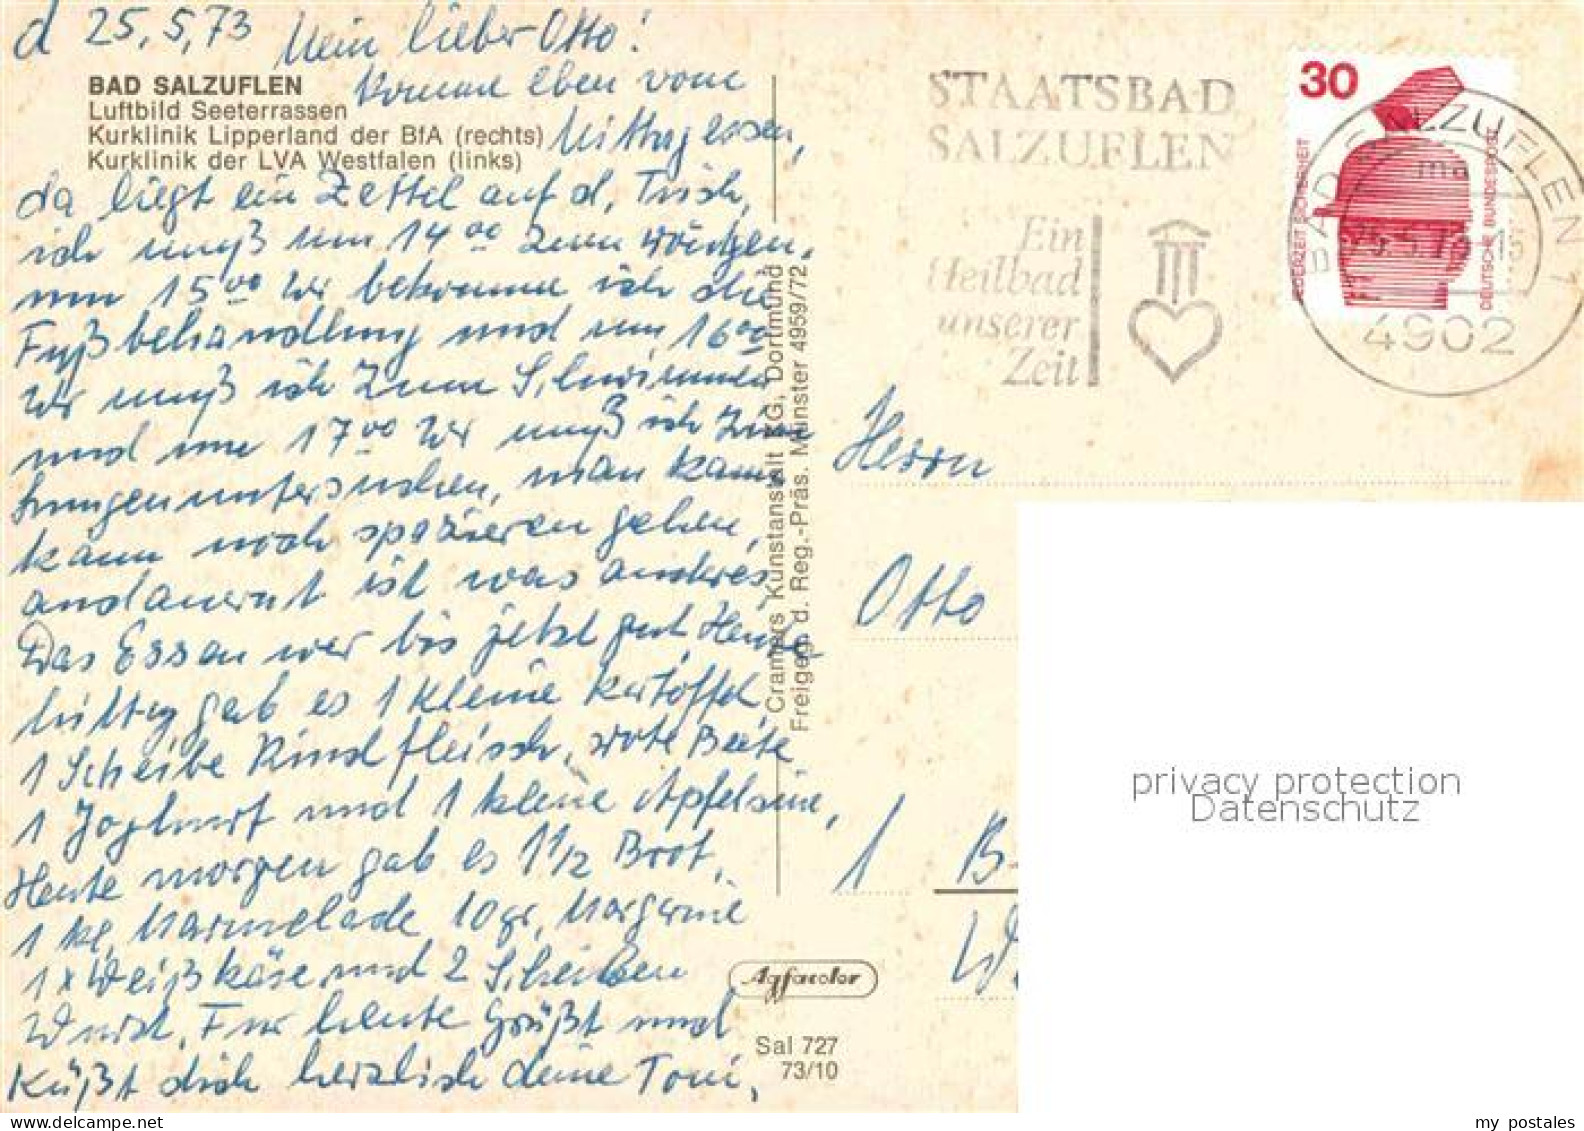 d 25.5.73 Mein lieber Otto!
BAD SALZUFLEN
Luftbild Seeterrassen
Kurklinik Lipperland der BfA (rechts)
Kurklinik der LVA Westfalen (links)
Komme eben vom
Mittagessen,
da liegt ein Zettel auf d. Tisch,
ich muß um 14 00 zum wiegen,
um 15 00 Uhr bekomme ich die
Fußbehandlung und um 16 00
Uhr muß ich zum Schwimmen
und um 17 00 Uhr muß ich zum
Lungenuntersuchen, man kann
kann noch spazieren gehen,
andauernt ist was andres,
Das Essen war bis jetzt gut, Heute
Mittag gab es 1 kleine Kartoffel,
1 Scheibe Rindfleisch, rote Beete
1 Joghurt und 1 kleine Apfelsine,
Heute morgen gab es 1 1/2 Brot,
1 kl. Marmelade 10 gr, Margarine
1 x Weißkäse und 2 Scheiben
Wurst, Für heute Grüßt und
Küßt dich herzlich deine Toni,
Cramers Kunstanstalt KG, Dortmund
Freigeg. d. Reg.-Präs. Münster 4959/72
Agfacolor
Sal 727
73/10
STAATSBAD
SALZUFLEN
Ein
Heilbad
unserer
Zeit
30
JEDERZEIT SICHERHEIT
DEUTSCHE BUNDESPOST
BAD SALZUFLEN 1
ma
25.5.73
4902
Herrn
Otto
1 B-
W
privacy protection
Datenschutz
my postales